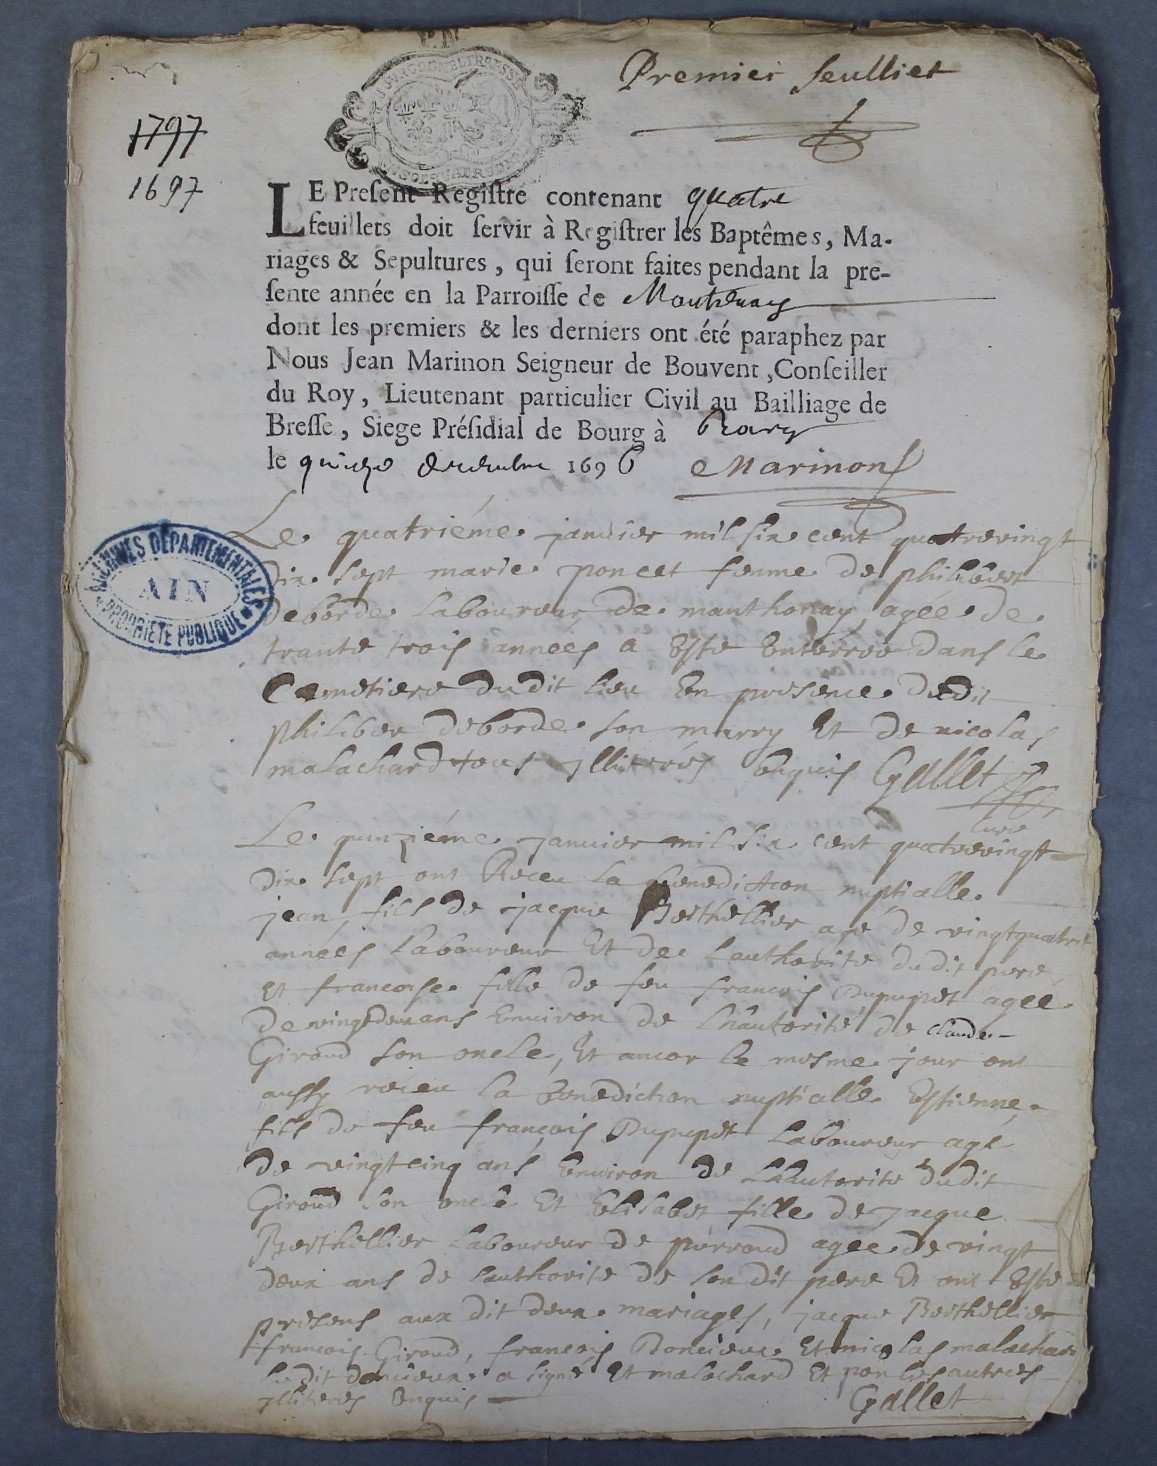 Premier feulliet
1797
1697
LE Present Registre contenant quatre
feuillets doit servir à Registrer les Baptêmes, Ma-
riages & Sepultures, qui seront faites pendant la pre-
sente année en la Parroisse de Montenay
dont les premiers & les derniers ont été paraphez par
Nous Jean Marinon Seigneur de Bouvent, Conseiller
du Roy, Lieutenant particulier Civil au Bailliage de
Bresse, Siege Présidial de Bourg à Bourg
le quinze decembre 1696 Marinon
ARCHIVES DÉPARTEMENTALES
AIN
PROPRIÉTÉ PUBLIQUE
Le quatriéme janvier mil six cent quatrevingt
dix sept marie poncet femme de philibert
deborde laboureur de manthonay agée de
trante trois années a Esté Enterrée dans le
Cemetiere dudit lieu En presence dudit
philiber deborde son marry Et de nicolas
malachard tous illiterés enquis Gallet
curé
Le quinziéme janvier mil six cent quatrevingt
dix sept ont Receu la benediction nuptialle
jean fils de jacque Berthellier agé de vingtquatre
années laboureur Et de lauthorité dudit pere
Et francoise fille de feu francois Dupupet agée
de vingtdeux ans Environ de lhautorité de claude
Giroud son oncle, Et ancor le mesme jour ont
aussy receu la benediction nuptialle Estienne
fils de feu françois Dupupet laboureur agé
de vingtcinq ans Environ de lhautorité dudit
Giroud son oncle Et Elisabet fille de jacque
Berthellier laboureur de perroud agée de vingt
deux ans de lauthorité de son dit pere Et ont Esté
presens aux dit deux mariages, jacque Berthellier
francois Giroud, francois Doncieux Et nicolas malachard
ledit doncieux a signé Et malachard Et pon les autres
illiterés enquis
Gallet